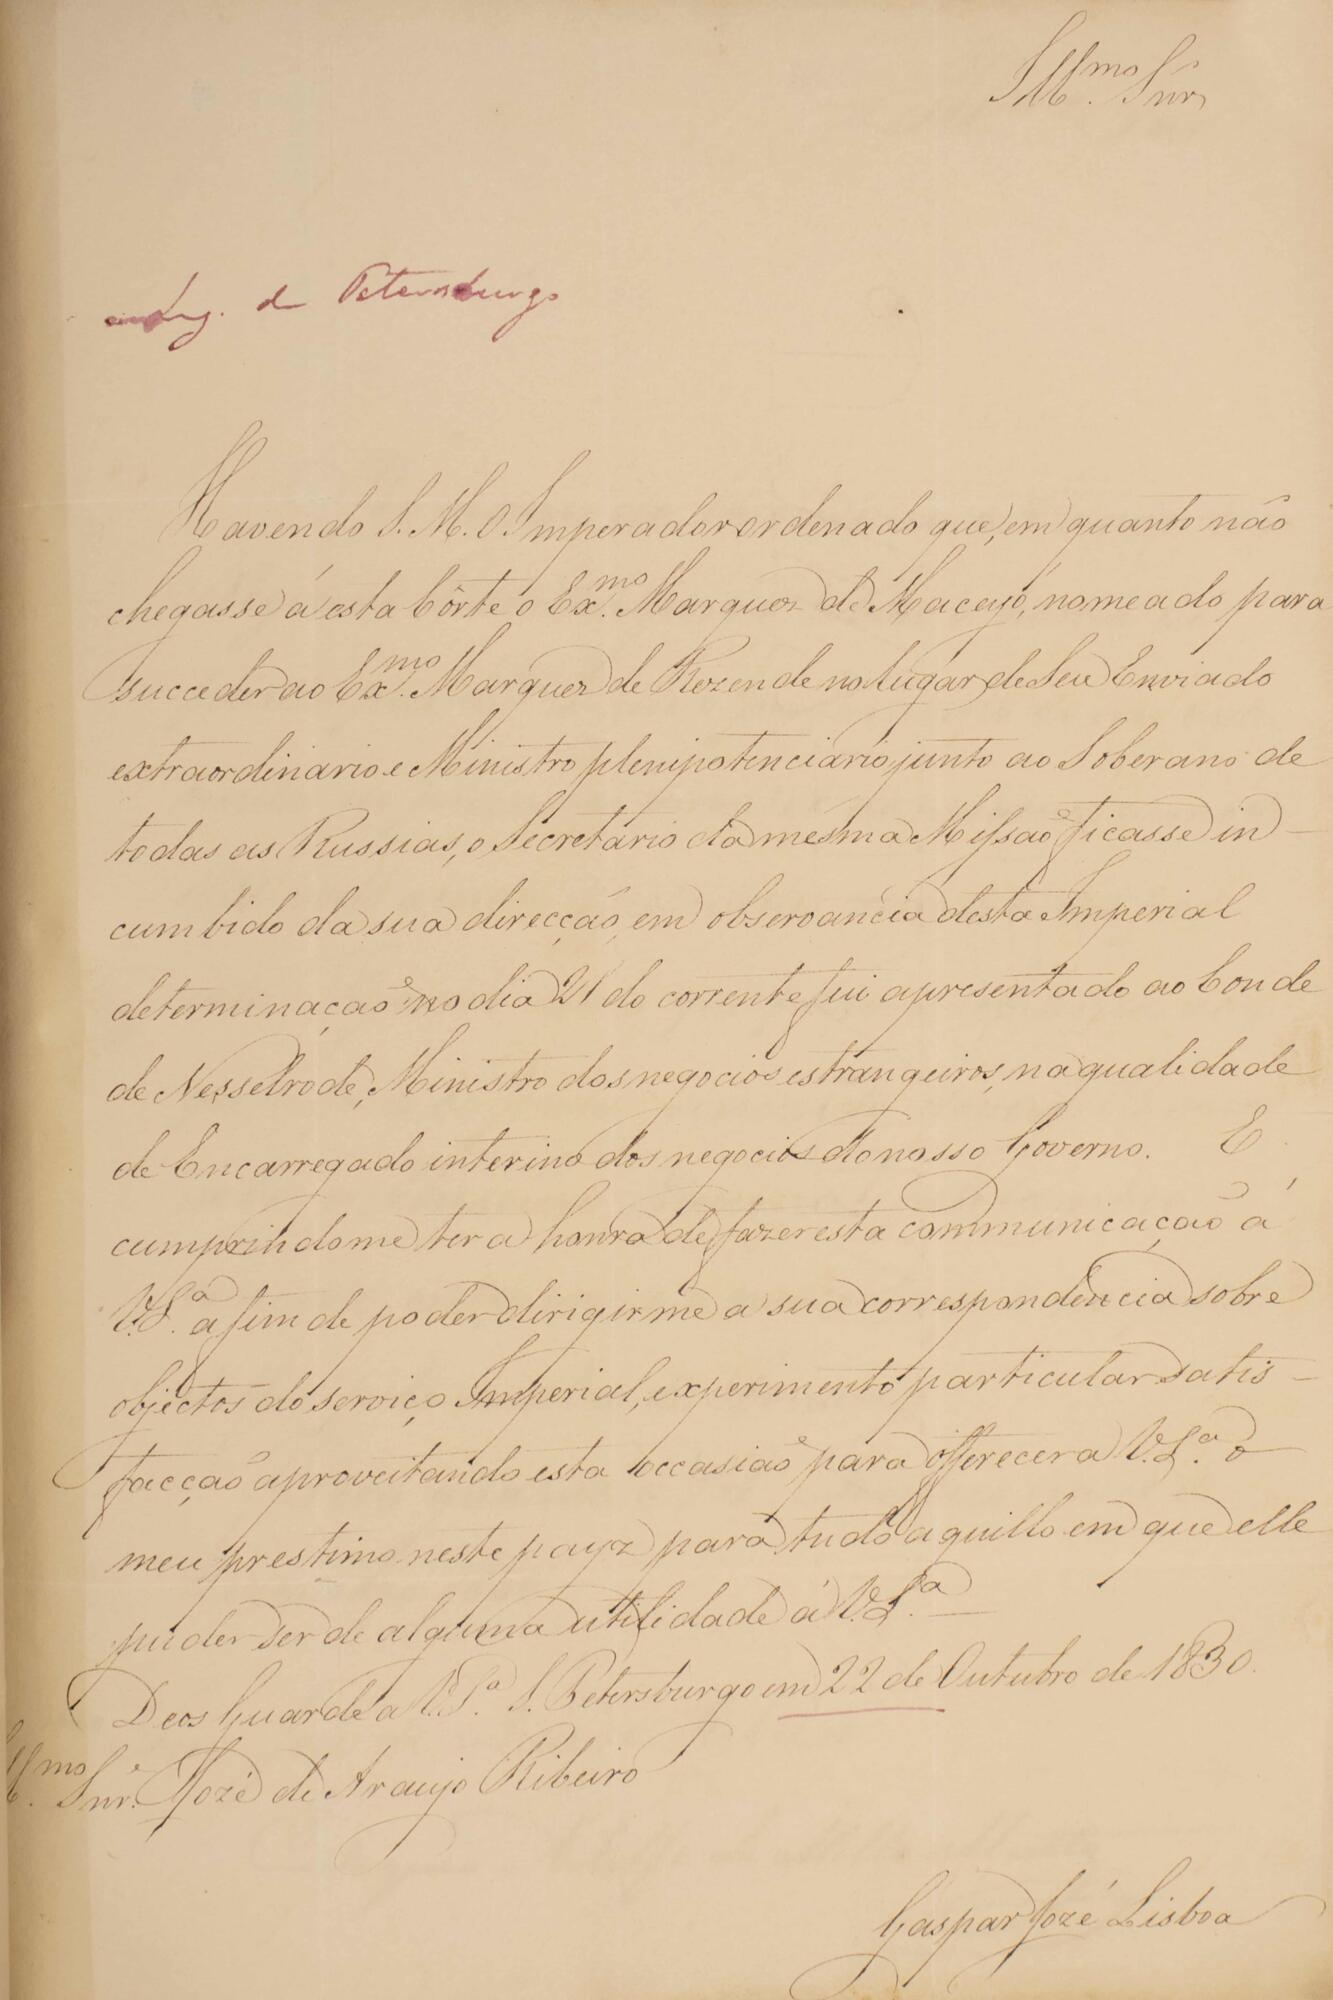 Ill.mo Snr.
Leg. de Petersburgo
Havendo S. M. O Imperador ordenado que, em quanto não
chegasse á esta Côrte o Ex.mo Marquez de Maceyó, nomeado para
succeder ao Ex.mo Marquez de Rezende no lugar de Seu Enviado
extraordinario e Ministro plenipotenciario junto ao Soberano de
todas as Russias, o Secretario da mesma Missaõ ficasse in-
cumbido da sua direcção, em observancia desta Imperial
determinaçaõ no dia 21 do corrente fui apresentado ao Conde
de Nesselrode, Ministro dos negocios estrangeiros, na qualidade
de Encarregado interino dos negocios do nosso Governo. E
cumprindo me ter a honra de fazer esta communicaçaõ á
V.S.a a fim de poder dirigir me a sua correspondencia sobre
objectos do serviço Imperial, experimento particular satis-
facçaõ aproveitando esta occasiaõ para offerecer a V.S.a o
meu prestimo neste payz para tudo aquillo em que elle
puder ser de alguma utilidade á V.S.a
Deos Guarde a V.S.a S. Petersburgo em 22 de Outubro de 1830.
Ill.mo Snr. Jozé de Araujo Ribeiro
Gaspar Jozé Lisboa